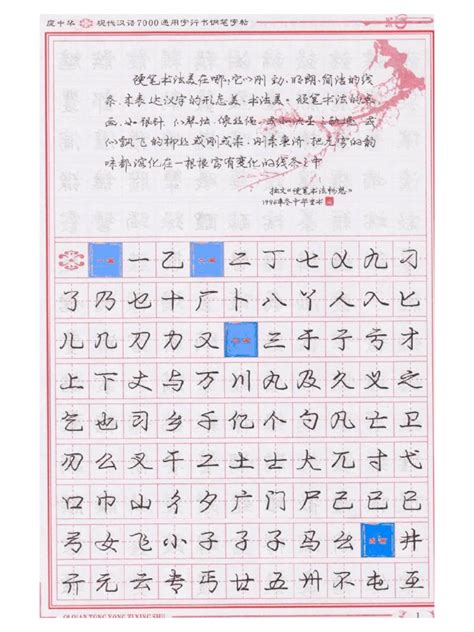 庞中华 现代汉语7000通用字行书钢笔字帖
硬笔书法美在哪,它以刚劲、明朗、简洁的线
条,来表达汉字的形态美、书法美。硬笔书法的点
画,银针、似琴弦、像丝绳、或
们飘飞的柳丝或刚或柔,刚柔兼济,把无穷的韵
味都演化在一根根富有变化的线条之中
拙文《硬笔书法畅想》
1996年冬中华书
一画 一 乙 二画 二 丁 七 乂 九 刁
了 乃 乜 十 厂 卜 八 丫 人 入 匕
儿 几 刀 力 又 三画 三 于 子 亏 才
上 下 丈 与 万 川 丸 及 久 义 之
乞 也 司 乡 千 亿 个 勺 凡 亡 卫
刃 么 叉 干 工 土 士 大 兀 寸 弋
口 巾 山 彳 夕 广 门 尸 己 已 巳
弓 女 飞 小 子 孑 孓 马 幺 四画 井
亓 元 云 专 丐 廿 五 卅 不 屯 互
QIQIAN TONG YONG ZI XING SHU 1